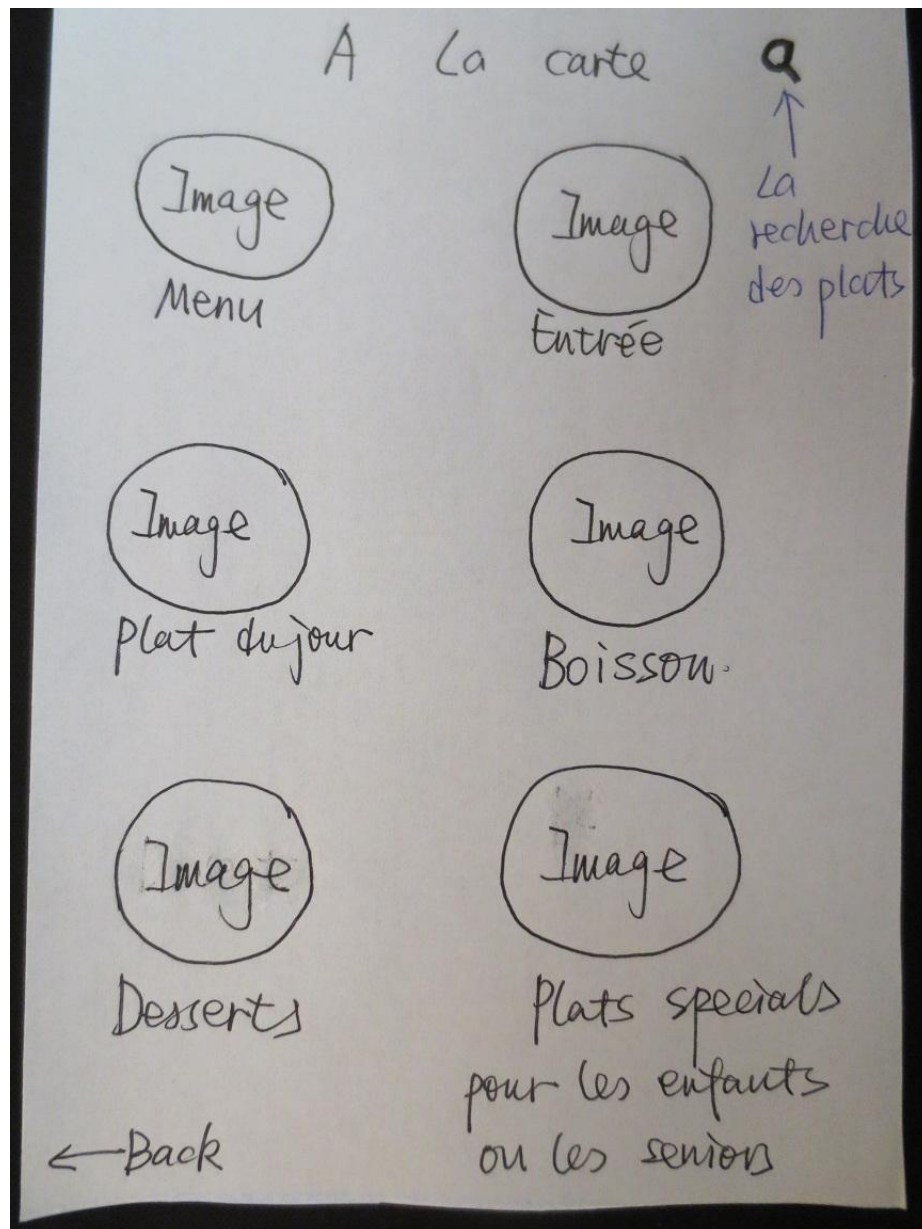 A La carte
La
recherche
des plats
Image
Menu
Image
Entrée
Image
Plat du jour
Image
Boisson.
Image
Desserts
Image
Plats specials
pour les enfants
ou les seniors
←Back